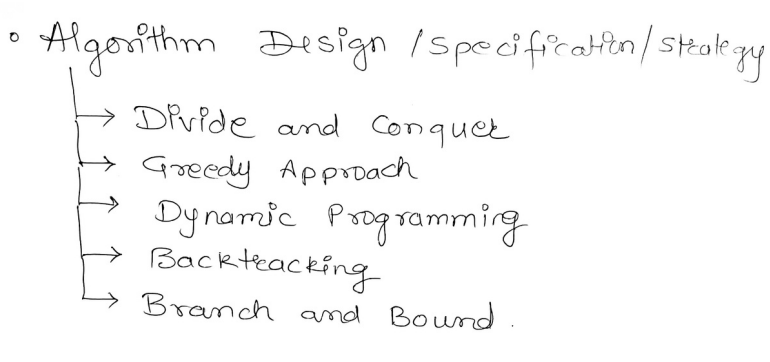 Algorithm Design / Specification / Strategy
Divide and Conquer
Greedy Approach
Dynamic Programming
Backtracking
Branch and Bound.